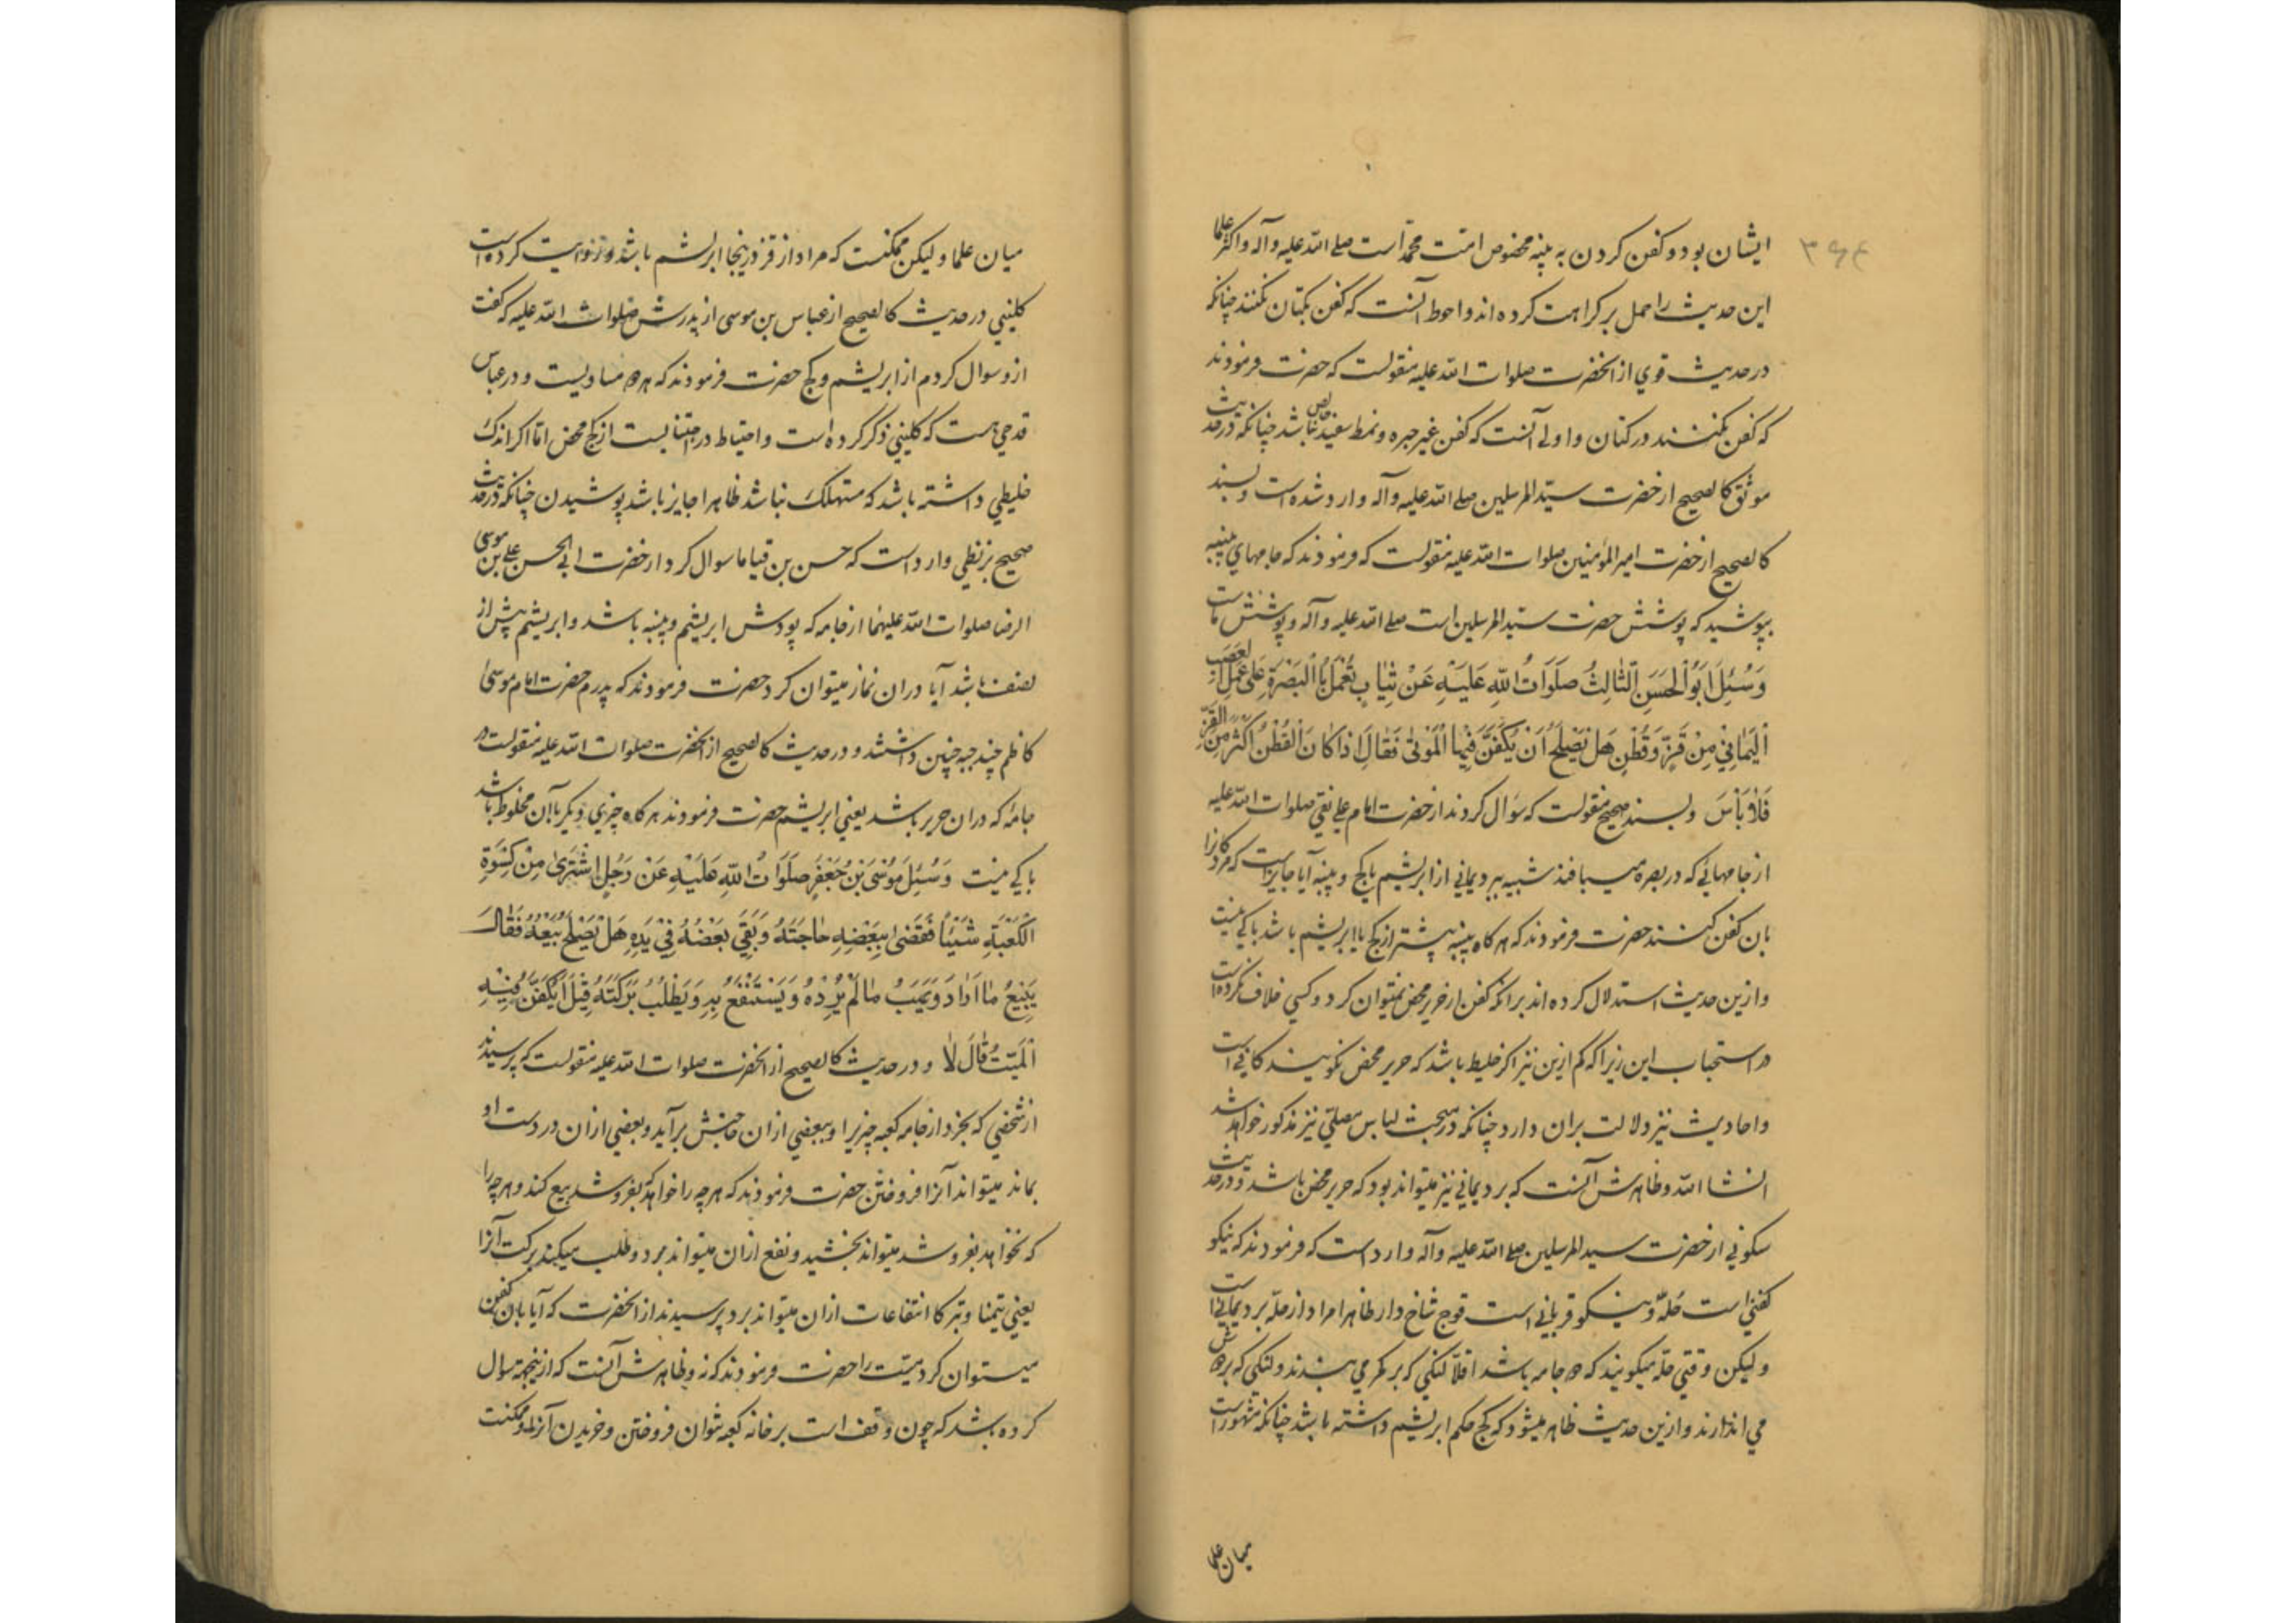 ۳۶۴
ایشان بود و کفن کردن به پنبه مخصوص امت محمد است صلی الله علیه وآله و اکثر علما
این حدیث را حمل بر کراهت کرده اند و احوط آنست که کفن بکتان نکنند چنانکه
در حدیث قوی از انحضرت صلوات الله علیه منقولست که حضرت فرمودند
که کفن نکنند در کتان و اولی آنست که کفن غیر حبره و نمط سفید خالص باشد چنانکه در حدیث
موثق کالصحیح از حضرت سید المرسلین صلی الله علیه وآله وارد شده است و بسند
کالصحیح از حضرت امیر المؤمنین صلوات الله علیه منقولست که فرمودند که جامهای پنبه
بپوشید که پوشش حضرت سید المرسلین است صلی الله علیه وآله و پوشش ماست
وَسُئِلَ اَبُو الْحَسَنِ الثَّالِثُ صَلَوَاتُ اللهِ عَلَیْهِ عَنْ ثِیَابٍ تُعْمَلُ بِالْبَصْرَةِ عَلی عَمَلِ الْعَصَبِ
الْیَمَانِیِّ مِنْ قَزٍّ وَقُطْنٍ هَلْ یَصْلُحُ اَنْ یُکَفَّنَ فِیهَا الْمَوْتی فَقَالَ اِذَا کَانَ الْقُطْنُ اَکْثَرَ مِنَ الْقَزِّ
فَلَا بَأْسَ وبسند صحیح منقولست که سؤال کردند از حضرت امام علی نقی صلوات الله علیه
از جامهائی که در بصره میبافند شبیه ببرد یمانی از ابریشم یا کج و پنبه آیا جایز است که مردگانرا
بان کفن کنند حضرت فرمودند که هر کاه پنبه بیشتر از کج یا ابریشم باشد باکی نیست
و ازین حدیث استدلال کرده اند بر انکه کفن از حریر محض نمیتوان کرد و کسی خلاف نکرده است
در استحباب این زیرا که کم ازین نیز اکر خلیط باشد که حریر محض نکویند کافی است
و احادیث نیز دلالت بران دارد چنانکه در مبحث لباس مصلی نیز مذکور خواهد شد
انشا الله و ظاهرش آنست که برد یمانی نیز میتواند بود که حریر محض باشد و در حدیث
سکونی از حضرت سید المرسلین صلی الله علیه وآله وارد است که فرمودند که نیکو
کفنی است حُلّه و نیکو قربانی است قوچ شاخ دار ظاهرا مراد از حلّه برد یمانی است
و لیکن وقتی حلّه میکویند که دو جامه باشد اقلاً لنکی که بر کمر می بندند و لنکی که بر دوش
می اندازند و ازین حدیث ظاهر میشود که کج حکم ابریشم داشته باشد چنانکه مشهور است
میان علما
میان علما و لیکن ممکنست که مراد از قز درینجا ابریشم باشد و روایت کرده است
کلینی در حدیث کالصحیح از عباس بن موسی از پدرش صلوات الله علیه که گفت
ازو سوال کردم از ابریشم و کج حضرت فرمودند که هر دو مساویست و در عباس
قدحی هست که کلینی ذکر کرده است و احتیاط در اجتنابست از کج محض امّا اکر اندک
خلیطی داشته باشد که مستهلک نباشد ظاهرا جایز باشد پوشیدن چنانکه در حدیث
صحیح بزنطی وارد است که حسن بن قیاما سوال کرد از حضرت ابی الحسن علی بن موسی
الرضا صلوات الله علیهما از جامه که پودش ابریشم و پنبه باشد و ابریشم بیش از
نصف باشد آیا دران نماز میتوان کرد حضرت فرمودند که پدرم حضرت امام موسی
کاظم چند جبه چنین داشتند و در حدیث کالصحیح از انحضرت صلوات الله علیه منقولست در
جامه که دران حریر باشد یعنی ابریشم حضرت فرمودند هر کاه چیزی دیکر باآن مخلوط باشد
باکی نیست وَسُئِلَ مُوسَی بْنُ جَعْفَرٍ صَلَوَاتُ اللهِ عَلَیْهِ عَنْ رَجُلٍ اشْتَرَی مِنْ کِسْوَةِ
الْکَعْبَةِ شَیْئًا فَقَضی بِبَعْضِهِ حَاجَتَهُ وَبَقِیَ بَعْضُهُ فِی یَدِهِ هَلْ یَصْلُحُ بَیْعُهُ فَقَالَ
یَبِیعُ مَا اَرَادَ وَیَهَبُ مَا لَمْ یُرِدْهُ وَیَسْتَنْفِعُ بِهِ وَیَطْلُبُ بَرَکَتَهُ قِیلَ اَیُکَفَّنُ فِیهِ
الْمَیِّتُ قَالَ لَا و در حدیث کالصحیح از انحضرت صلوات الله علیه منقولست که پرسیدند
از شخصی که بخرد از جامه کعبه چیزیرا و ببعضی ازان حاجتش برآید و بعضی ازان در دست او
بماند میتواند آنرا فروختن حضرت فرمودند که هر چه را خواهد بفروشد بیع کند و هر چه را
که نخواهد بفروشد میتواند بخشید و نفع ازان میتواند برد و طلب میکند برکت آنرا
یعنی تیمنا و تبرکا انتفاعات ازان میتواند برد پرسیدند از انحضرت که آیا بان کفن
میتوان کرد میّت را حضرت فرمودند که نه و ظاهرش آنست که ازینجهة سوال
کرده باشد که چون وقف است بر خانه کعبه نتوان فروختن و خریدن آنرا و ممکنست